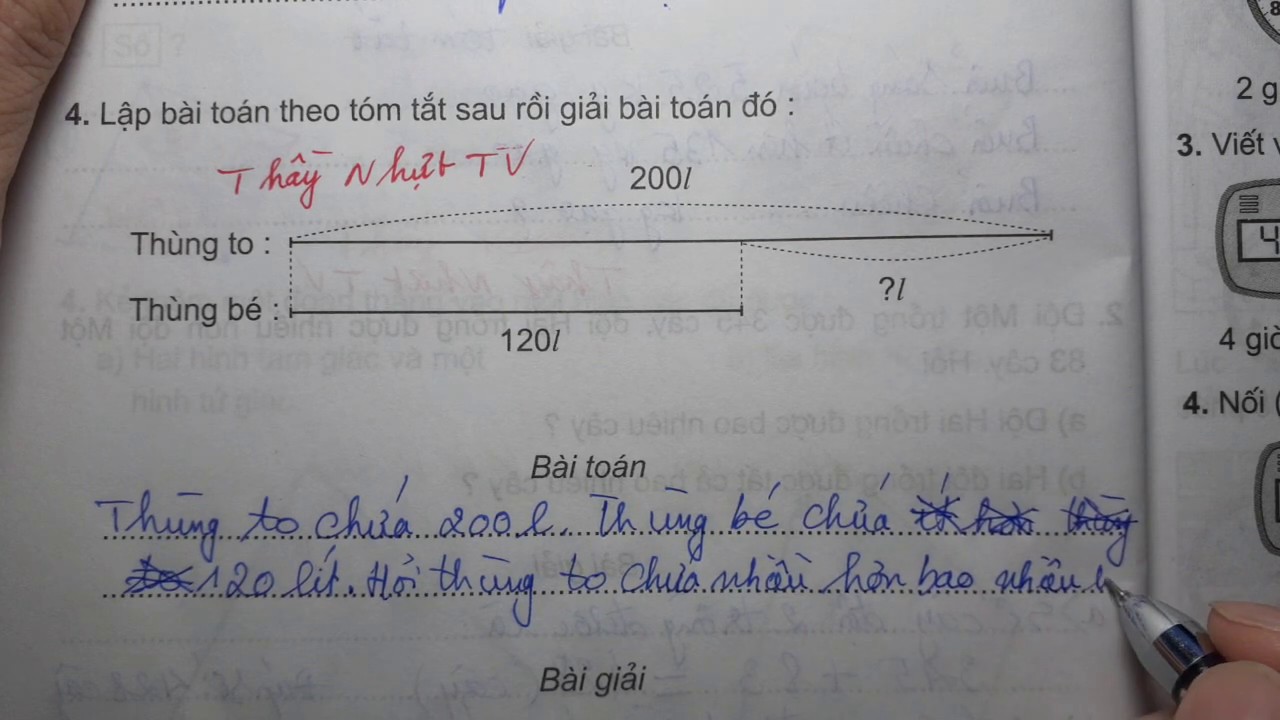 4. Lập bài toán theo tóm tắt sau rồi giải bài toán đó :
Thầy Nhựt TV
200l
Thùng to :
?l
Thùng bé :
120l
Bài toán
Thùng to chứa 200 l. Thùng bé chứa
120 lít. Hỏi thùng to chứa nhiều hơn bao nhiêu
Bài giải
8
2 g
3. Viết v
4
4 giờ
4. Nối (